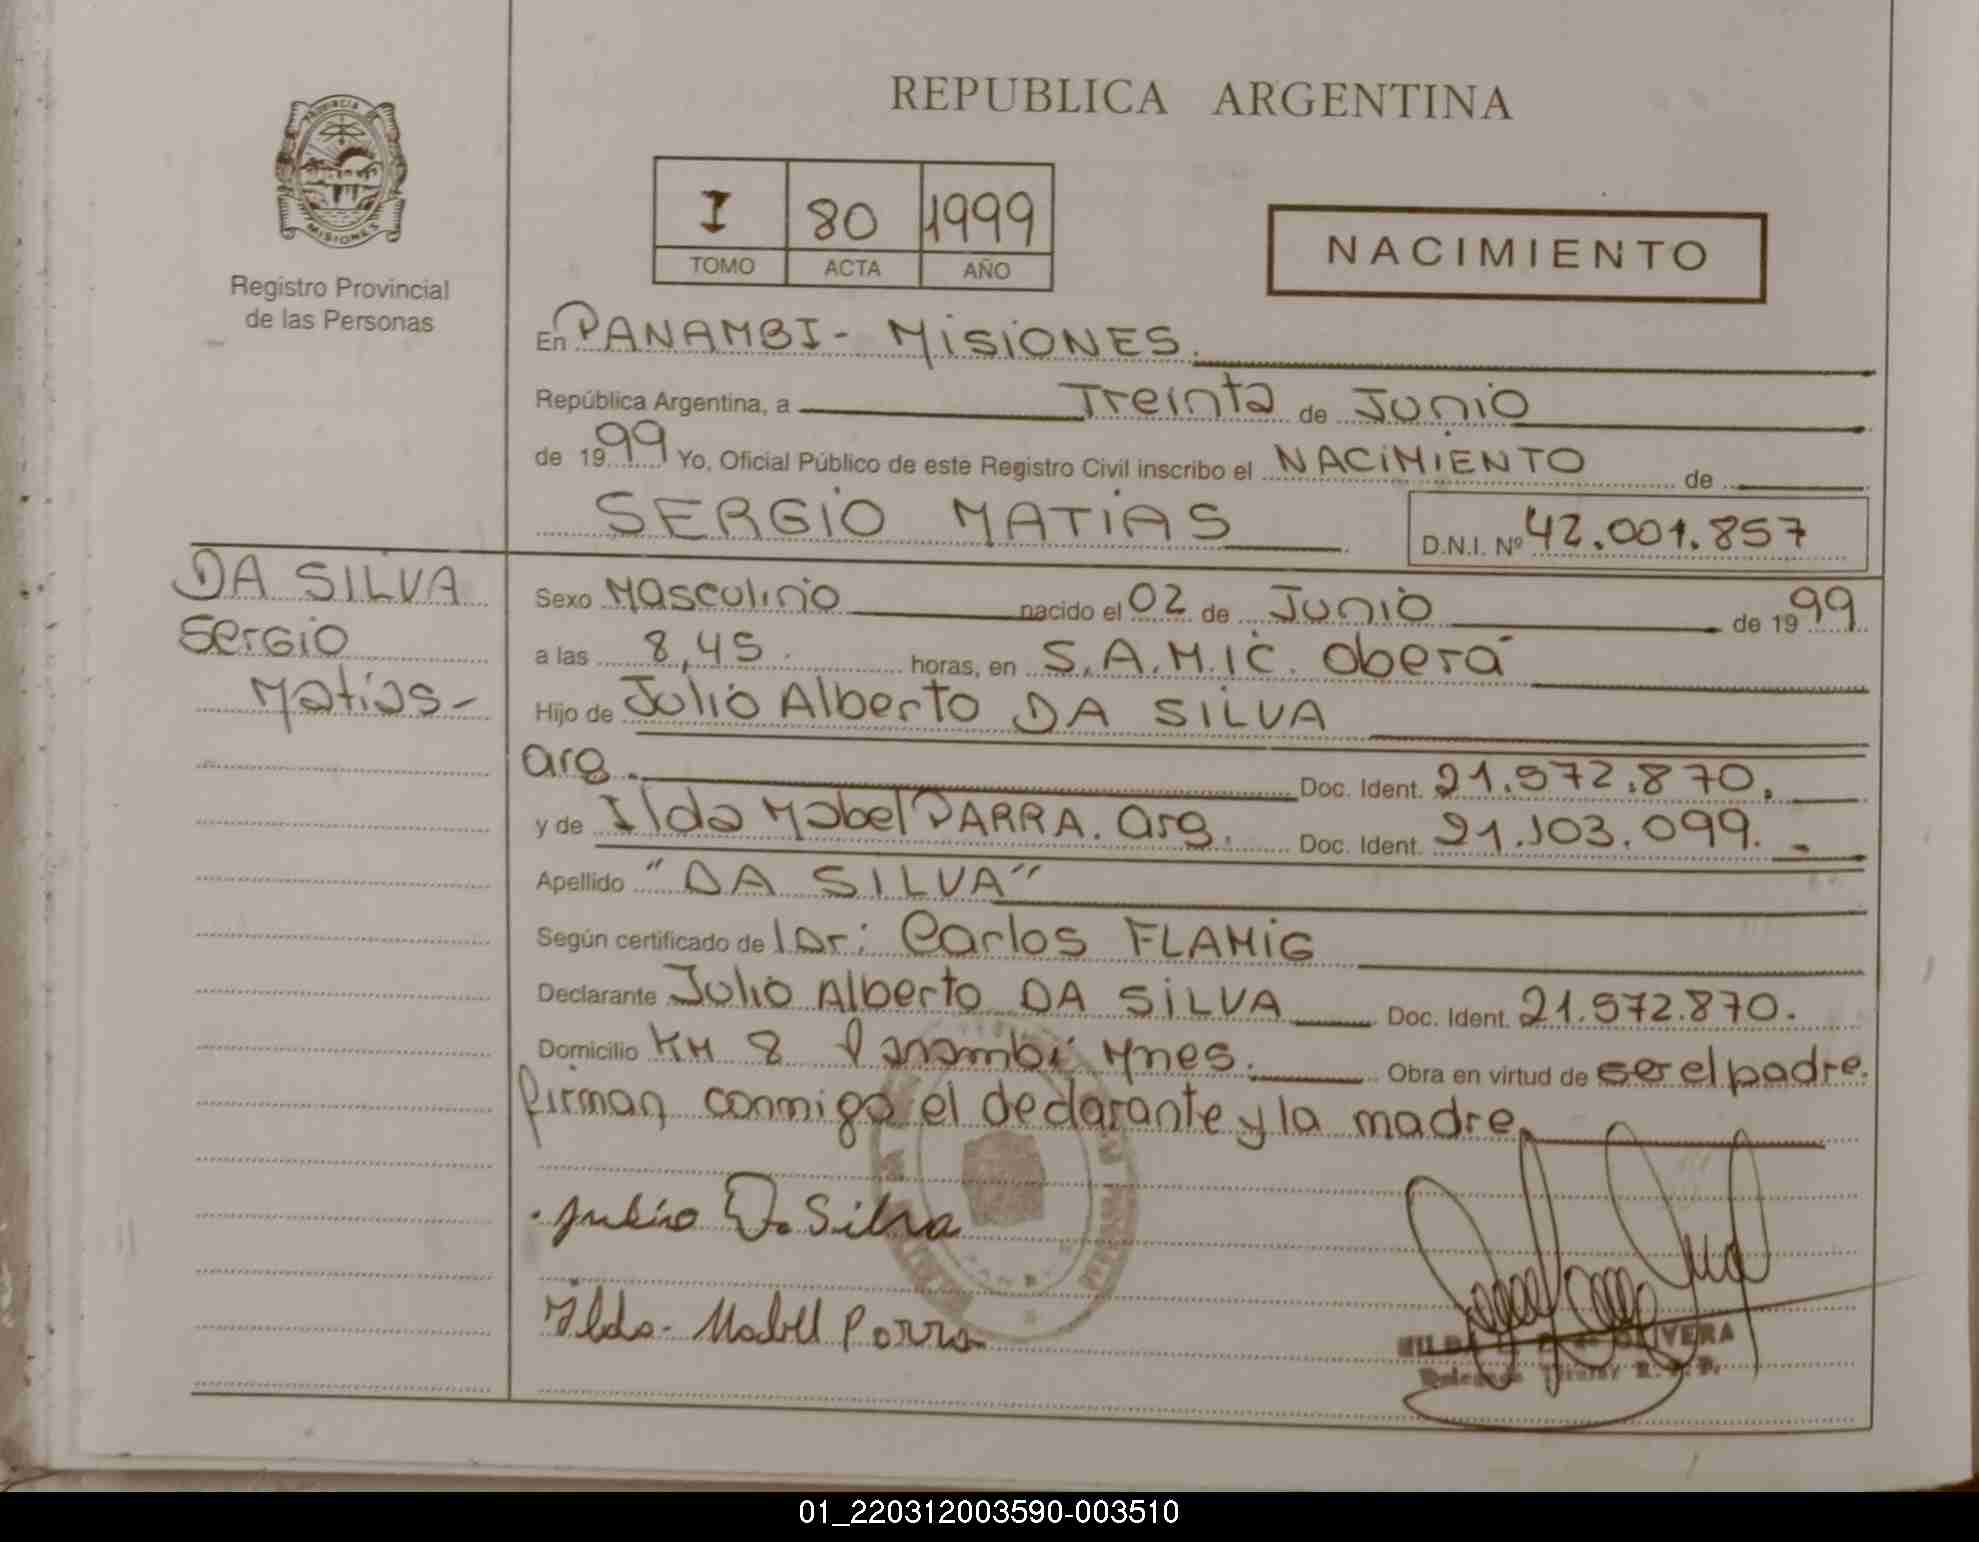 PROVINCIA DE
MISIONES
Registro Provincial
de las Personas
REPUBLICA ARGENTINA
I 80 1999
TOMO ACTA AÑO
NACIMIENTO
En PANAMBI - MISIONES.
República Argentina, a Treinta de Junio
de 1999 Yo, Oficial Público de este Registro Civil inscribo el NACIMIENTO de
SERGIO MATIAS
D.N.I. Nº 42.001.857
DA SILVA
Sergio
Matias -
Sexo Masculino nacido el 02 de Junio de 1999
a las 8,45. horas, en S.A.M.IC. Oberá
Hijo de Julio Alberto DA SILVA
arg. Doc. Ident. 21.572.870.
y de Ilda Mabel PARRA. arg. Doc. Ident. 21.103.099. -
Apellido "DA SILVA"
Según certificado de l Dr: Carlos FLAMIG
Declarante Julio Alberto DA SILVA Doc. Ident. 21.572.870.
Domicilio KM 8 Panambi Mnes. Obra en virtud de ser el padre.
firman conmigo el declarante y la madre
Julio Da Silva
Ilda - Mabel Parra
OLIVERA
Titular
01_220312003590-003510